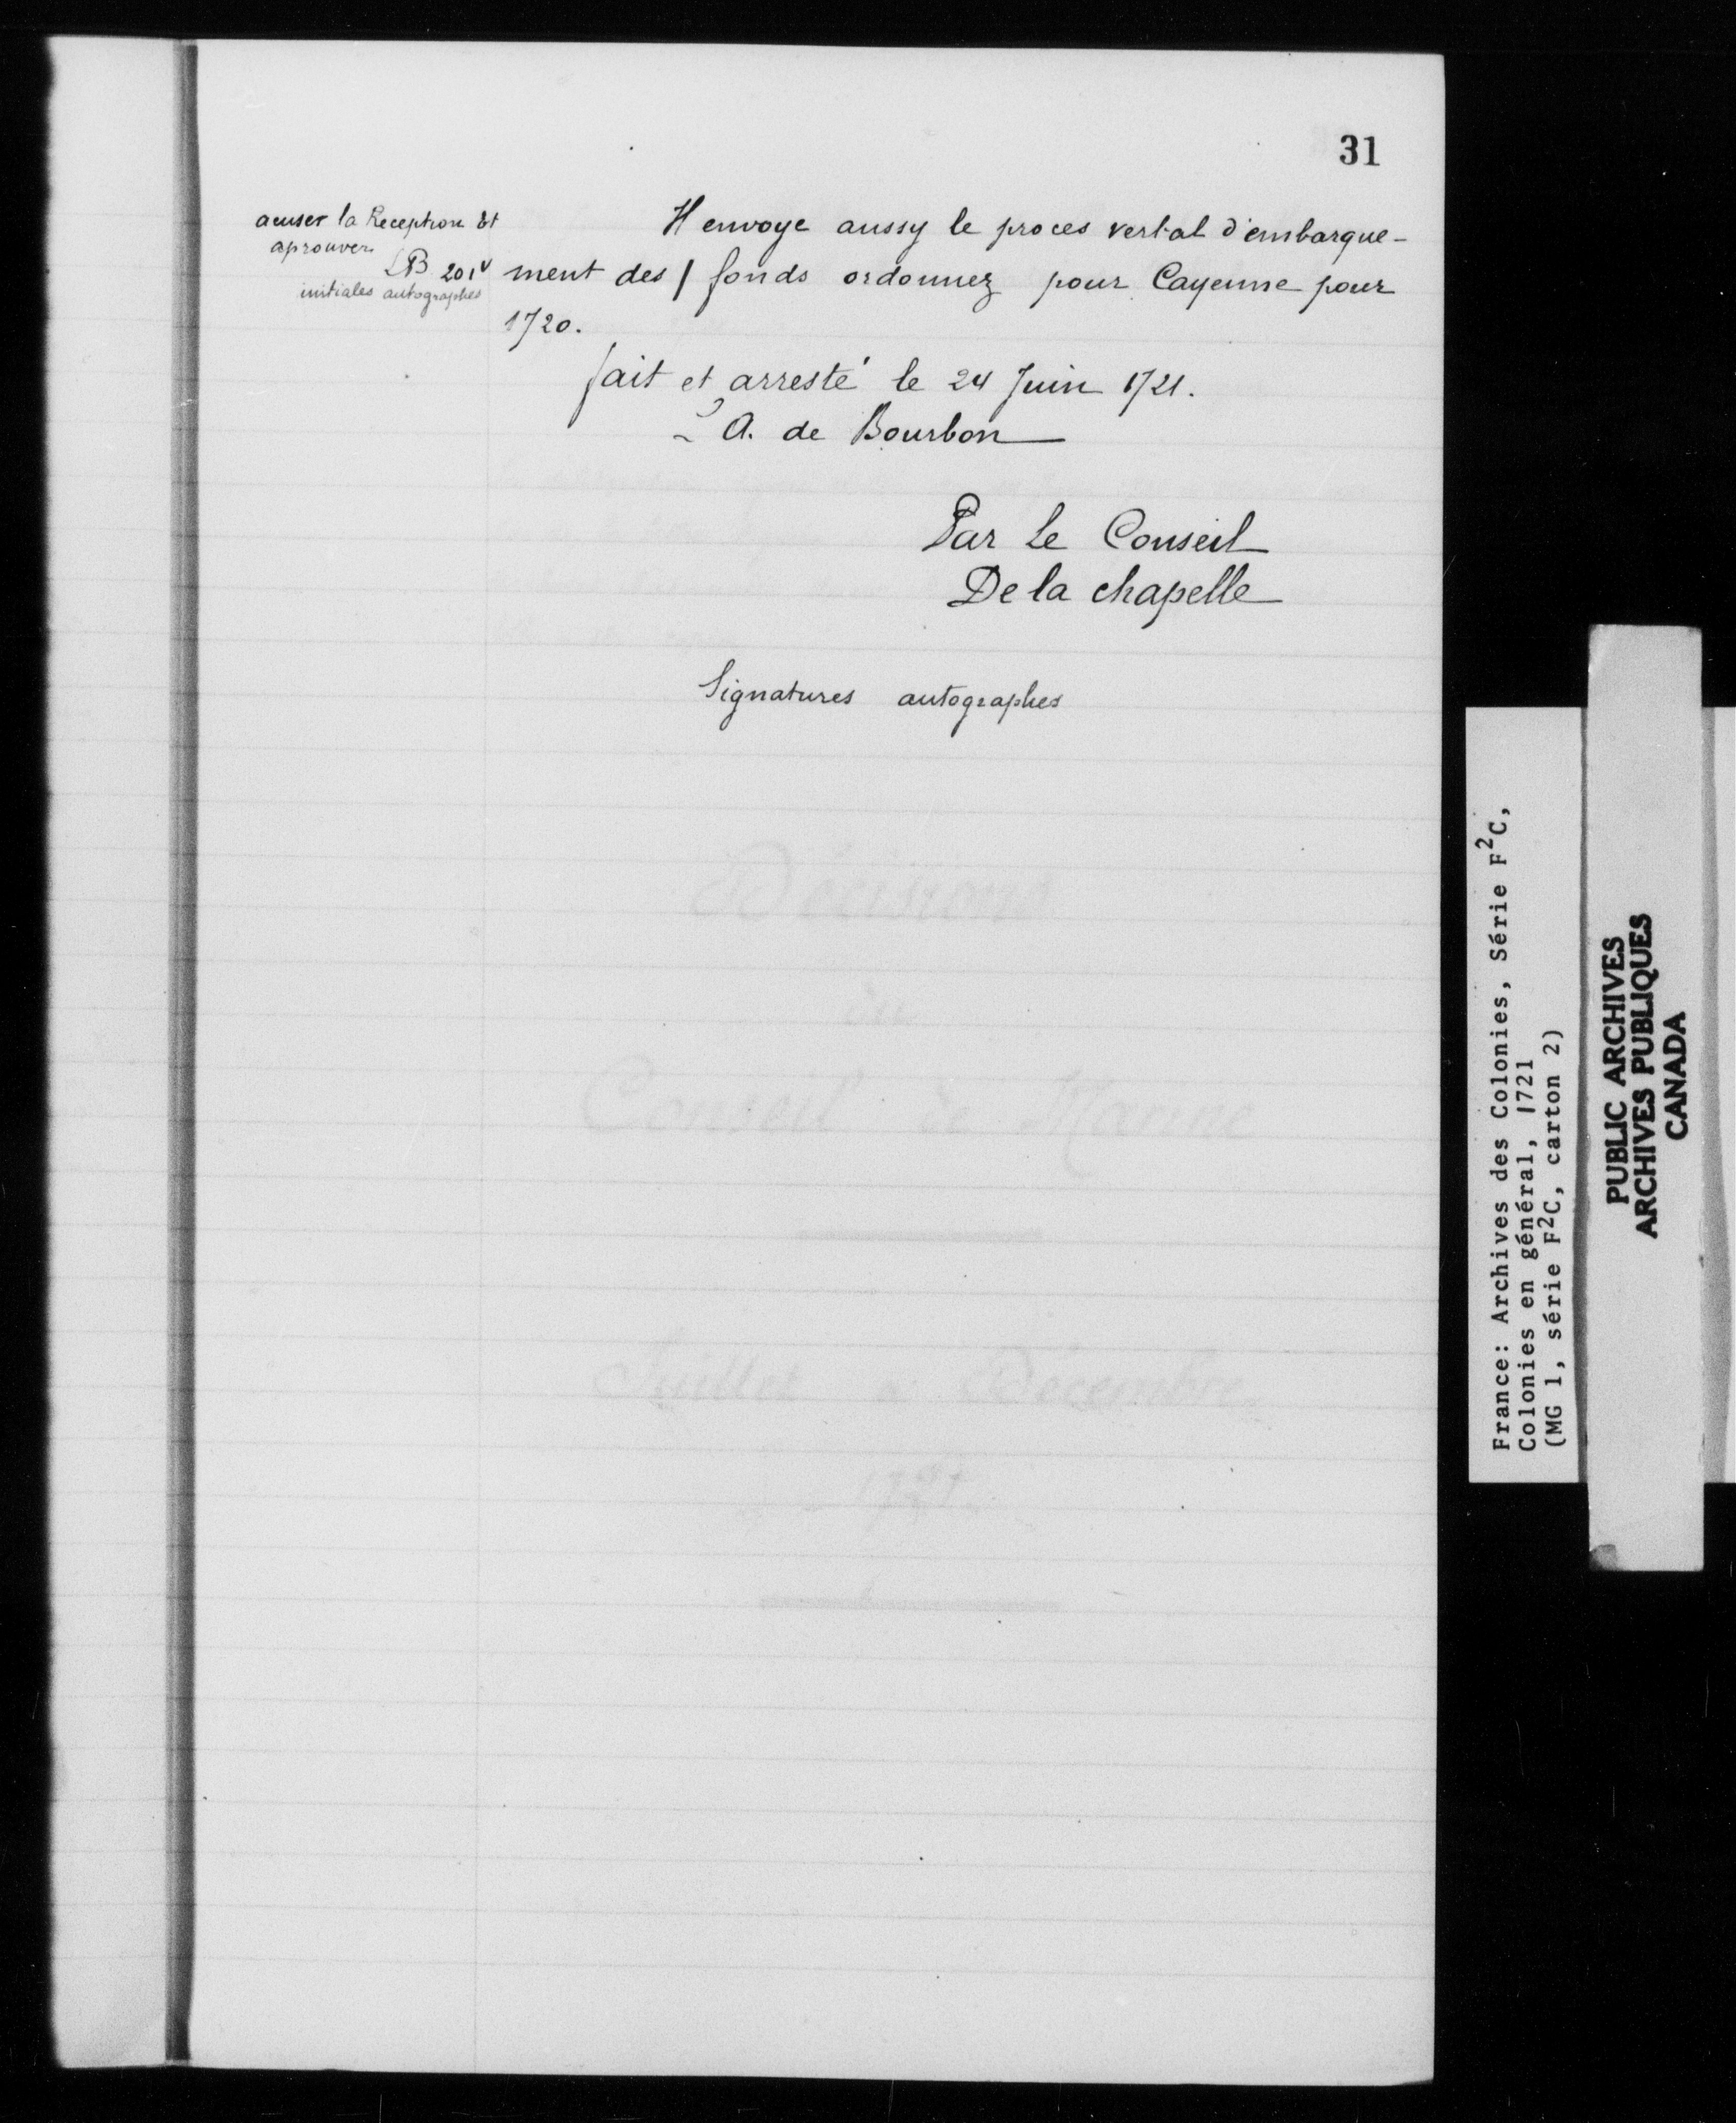 31
acuser la Reception Et
aprouver
LB 201v
initiales autographes
Il envoye aussy le proces verbal d'embarque-
ment des / fonds ordonnez pour Cayenne pour
1720.
fait et arresté le 24 Juin 1721.
L A. de Bourbon
Par le Conseil
De la chapelle
Signatures autographes
Décisions
du
Conseil de Marine
Juillet a Décembre
1721
France: Archives des Colonies, Série F²C,
Colonies en général, 1721
(MG 1, série F²C, carton 2)
PUBLIC ARCHIVES
ARCHIVES PUBLIQUES
CANADA